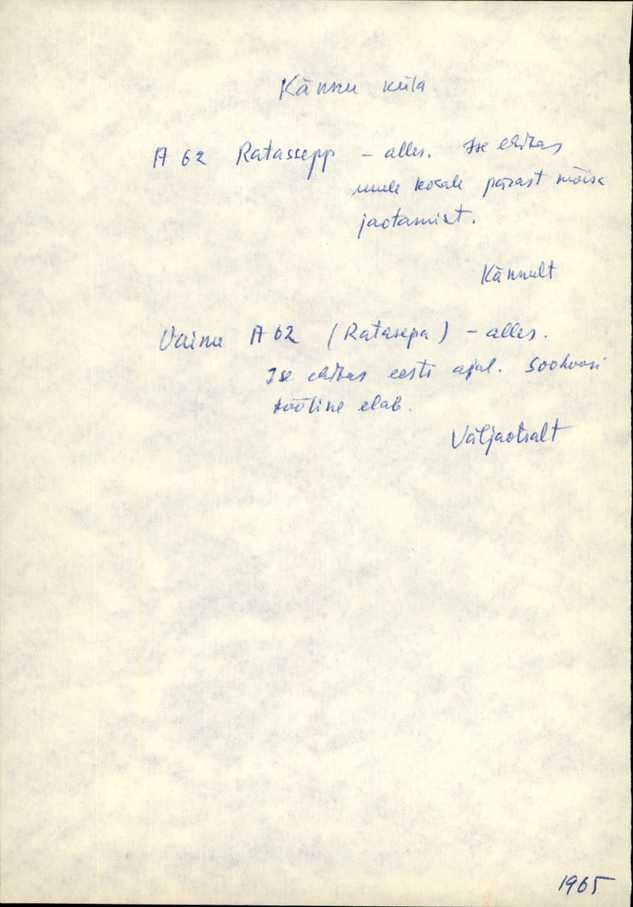 Kännu küla
A 62 Ratassepp – alles. Ise ehitas
uuele kohale pärast mõisa
jaotamist.
Kännult
Vainu A 62 (Ratasepa) – alles.
Ise ehitas eesti ajal. Sookuusi
tööline elab.
Väljaotsalt
1965